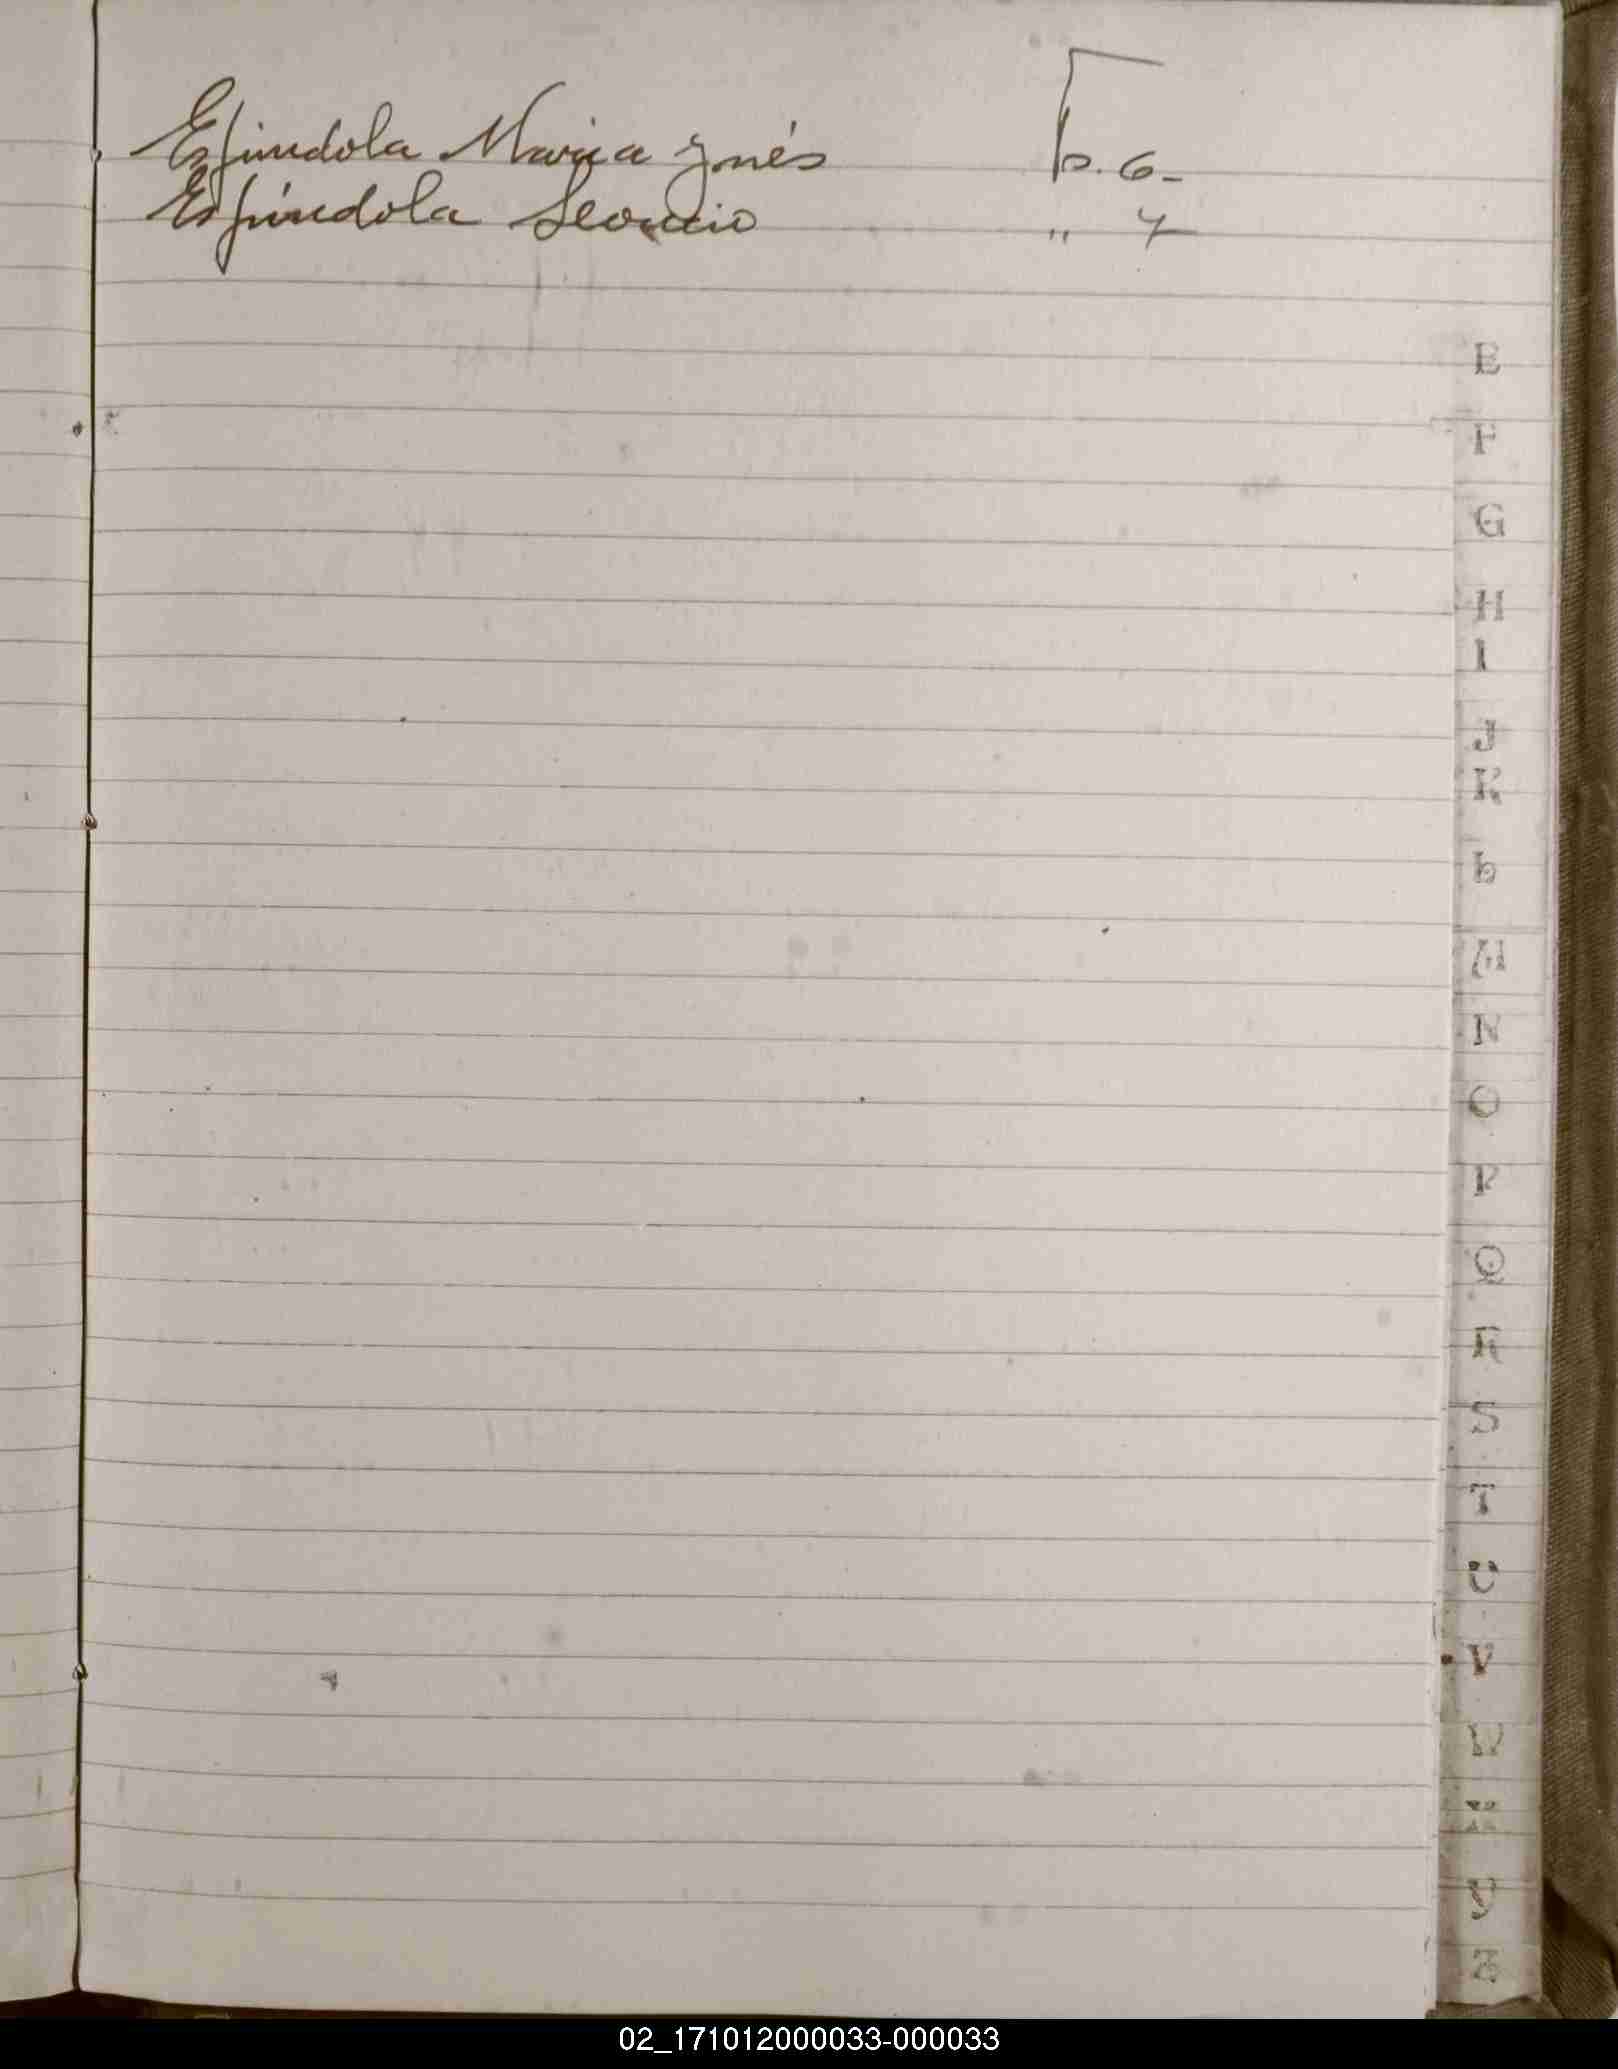 Espindola Maria Ynés p. 6-
Espíndola Leoncio " 7
E
F
G
H
I
J
K
L
M
N
O
P
Q
R
S
T
U
V
X
Y
Z
02_171012000033-000033